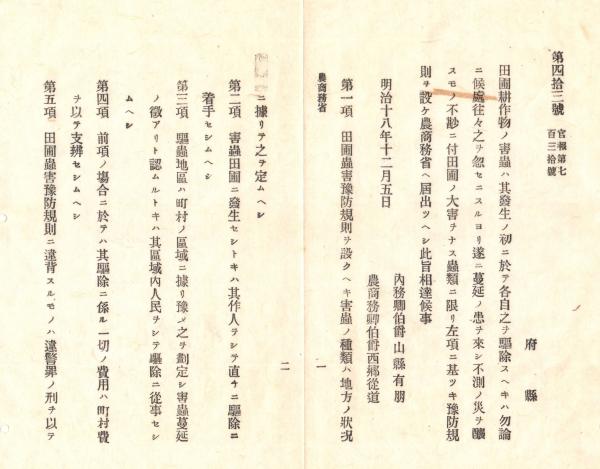 第四拾三號 官報第七
百三拾號
府縣
田圃耕作物ノ害蟲ハ其發生ノ初ニ於テ各自之ヲ驅除スヘキハ勿論
ニ候處往々之ヲ忽セニスルヨリ遂ニ蔓延ノ患ヲ來シ不測ノ災ヲ釀
スモノ不尠ニ付田圃ノ大害ヲナス蟲類ニ限リ左項ニ基ツキ豫防規
則ヲ設ケ農商務省ヘ届出ツヘシ此旨相達候事
明治十八年十二月五日
內務卿伯爵山縣有朋
農商務卿伯爵西鄉從道
第一項 田圃蟲害豫防規則ヲ設クヘキ害蟲ノ種類ハ地方ノ狀況
農商務省
一
ニ據リテ之ヲ定ムヘシ
第二項 害蟲田圃ニ發生セシトキハ其作人ヲシテ直チニ驅除ニ
着手セシムヘシ
第三項 驅蟲地區ハ町村ノ區域ニ據リ豫メ之ヲ劃定シ害蟲蔓延
ノ徵アリト認ムルトキハ其區域內人民ヲシテ驅除ニ從事セシ
ムヘシ
第四項 前項ノ場合ニ於テハ其驅除ニ係ル一切ノ費用ハ町村費
ヲ以テ支辨セシムヘシ
第五項 田圃蟲害豫防規則ニ違背スルモノハ違警罪ノ刑ヲ以テ
二